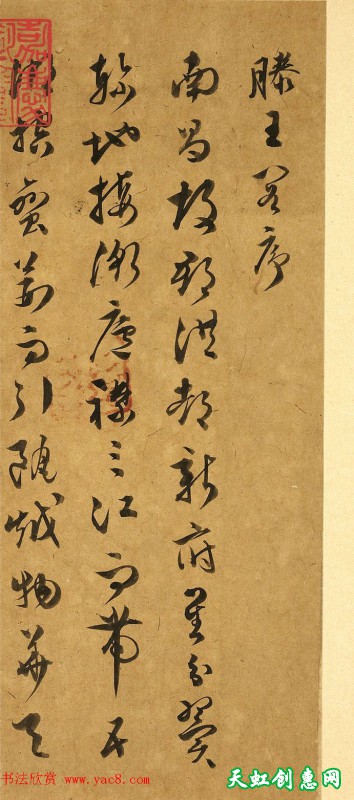 滕王閣序
南昌故郡洪都新府星分翼
軫地接衡廬襟三江而帶五
湖控蠻荊而引甌越物華天
书法欣赏 www.yac8.com
天虹创惠网